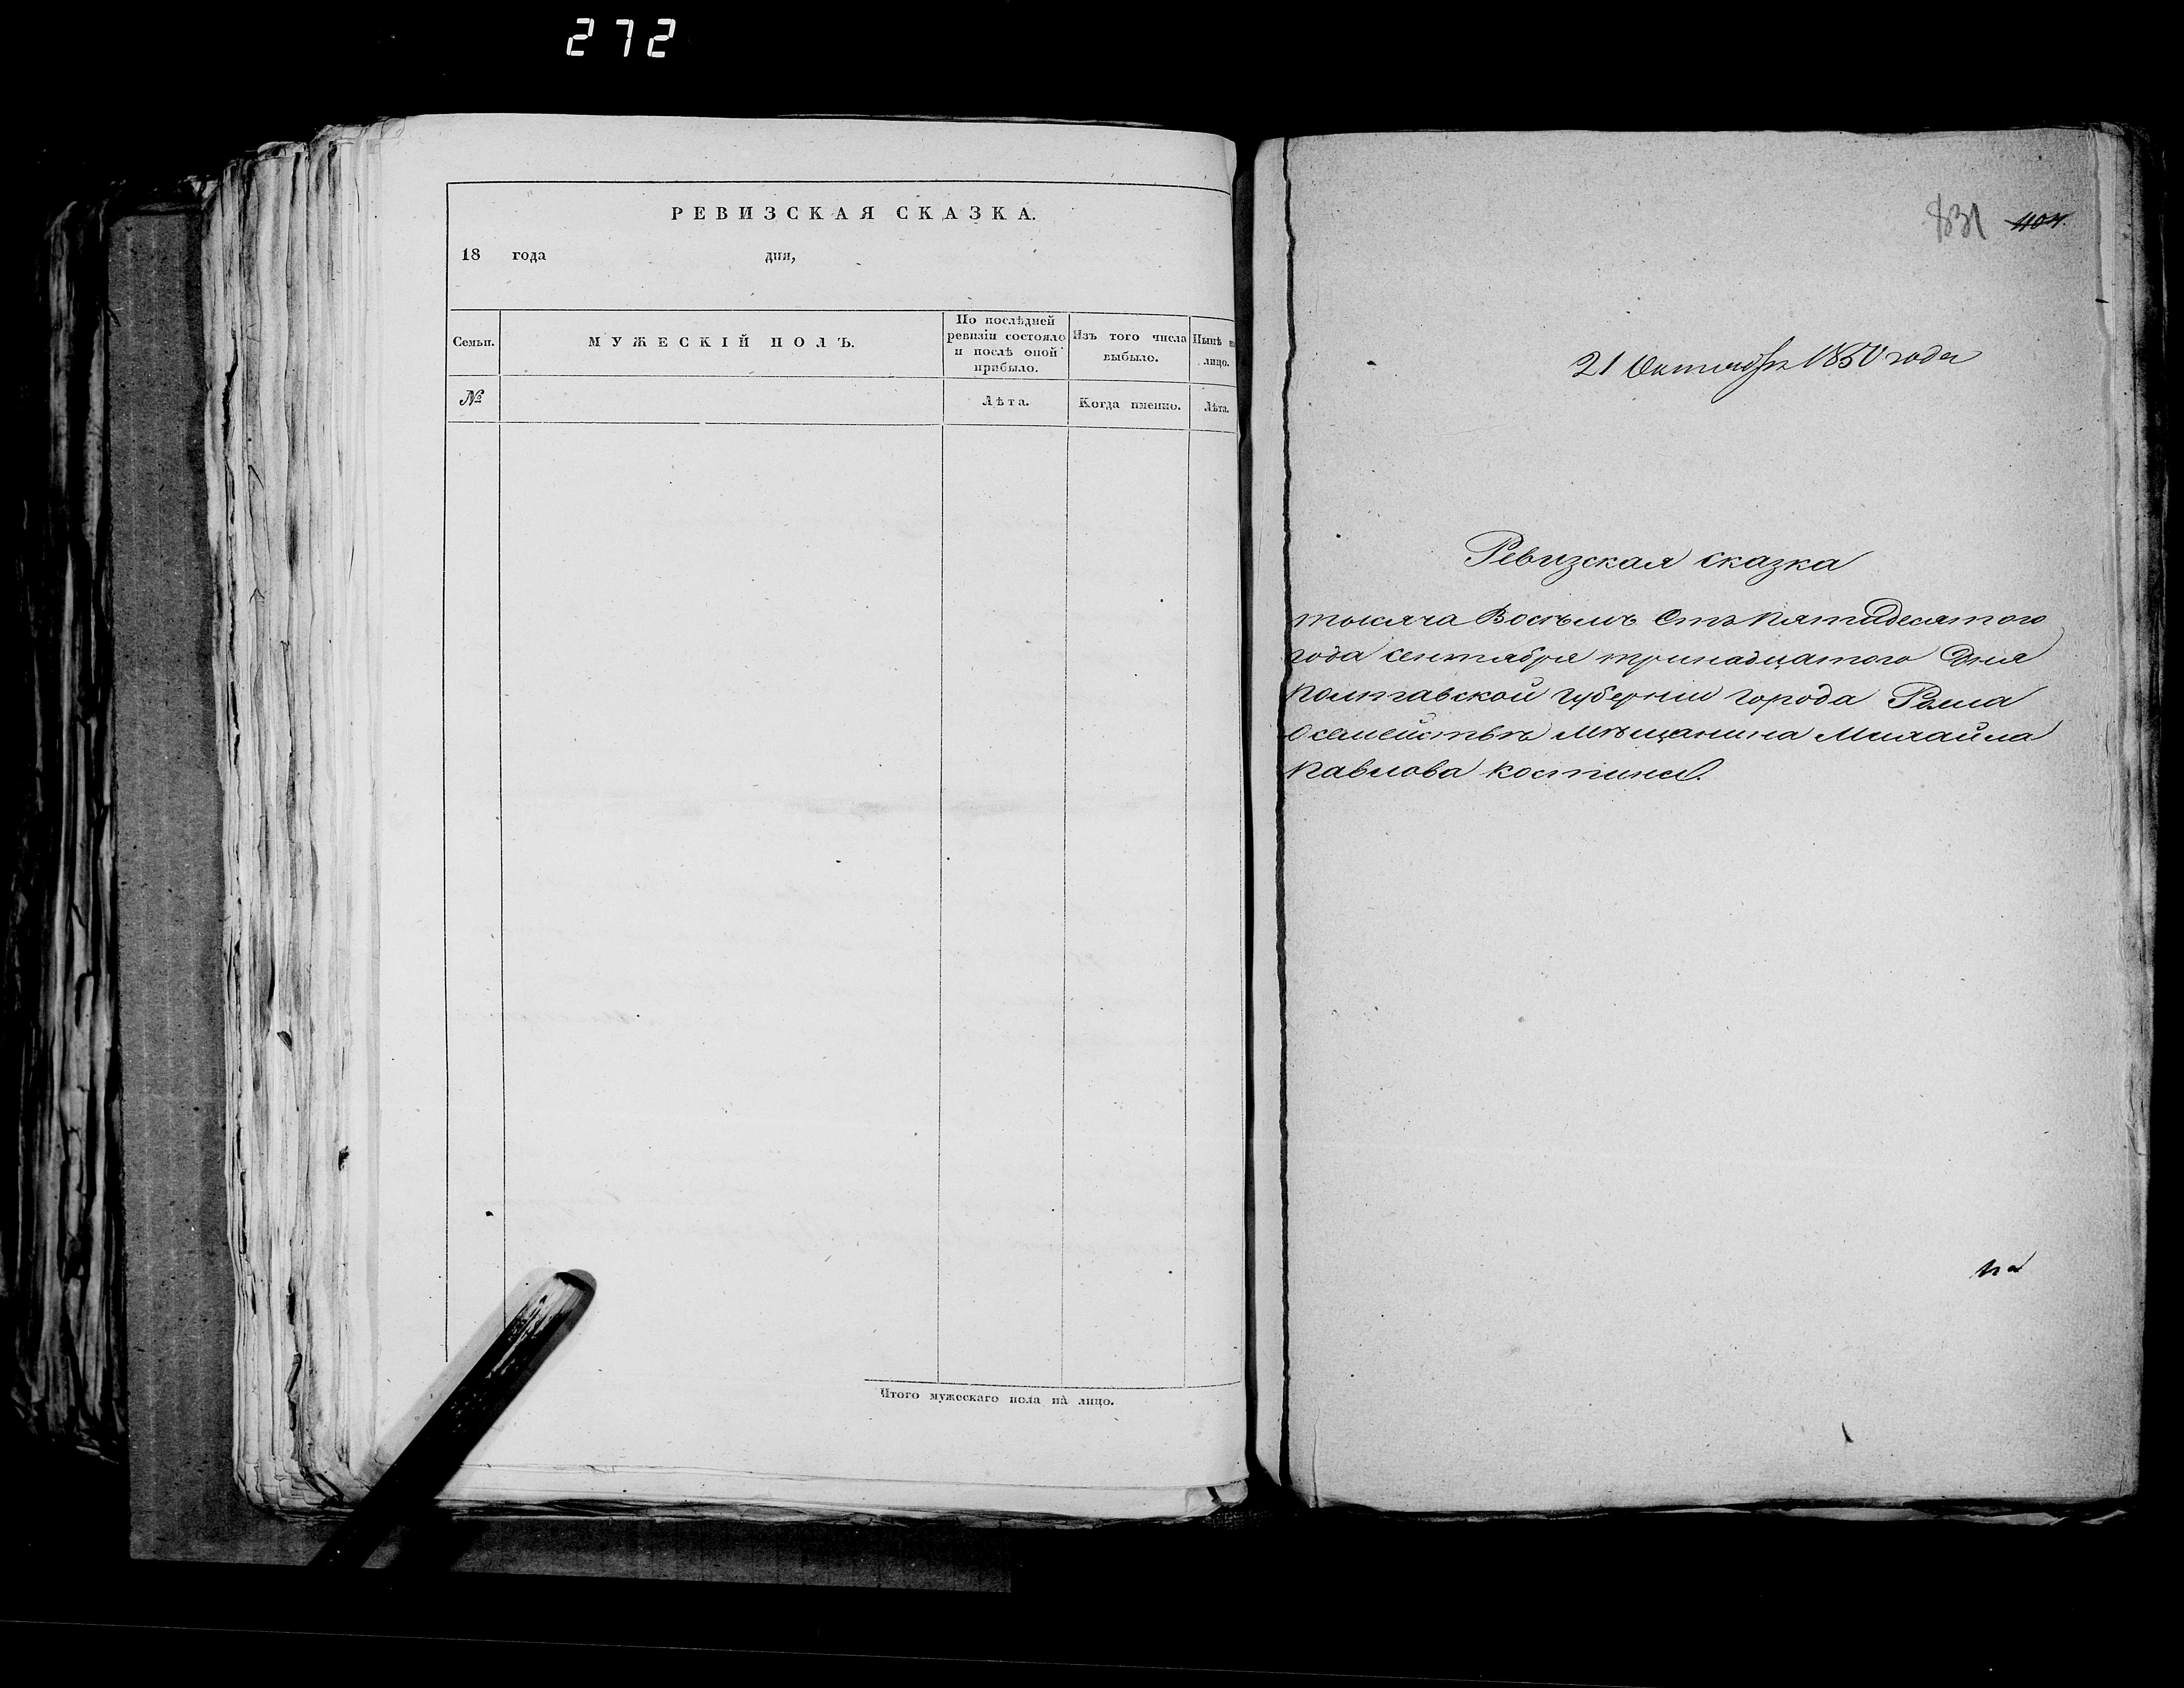 272
РЕВИЗСКАЯ СКАЗКА.
18 года дня,
Семьи. МУЖЕСКІЙ ПОЛЪ. По послѣдней ревизіи состояло и послѣ оной прибыло. Изъ того числа выбыло. Нынѣ лицо.
№ Лѣта. Когда именно. Лѣта.
Итого мужескаго пола на̀ лицо.
831 1104.
21 Октября 1850 года
Ревизская сказка
тысяча Восѣмъ Отъ Пятидесятого
года сентября тринадцатого Дня
Полтавской губерніи города Ромна
О семействѣ мѣщанина Михайла
Павлова Костина.
на